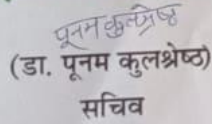 पूनम कुलश्रेष्ठ
(डा. पूनम कुलश्रेष्ठ)
सचिव